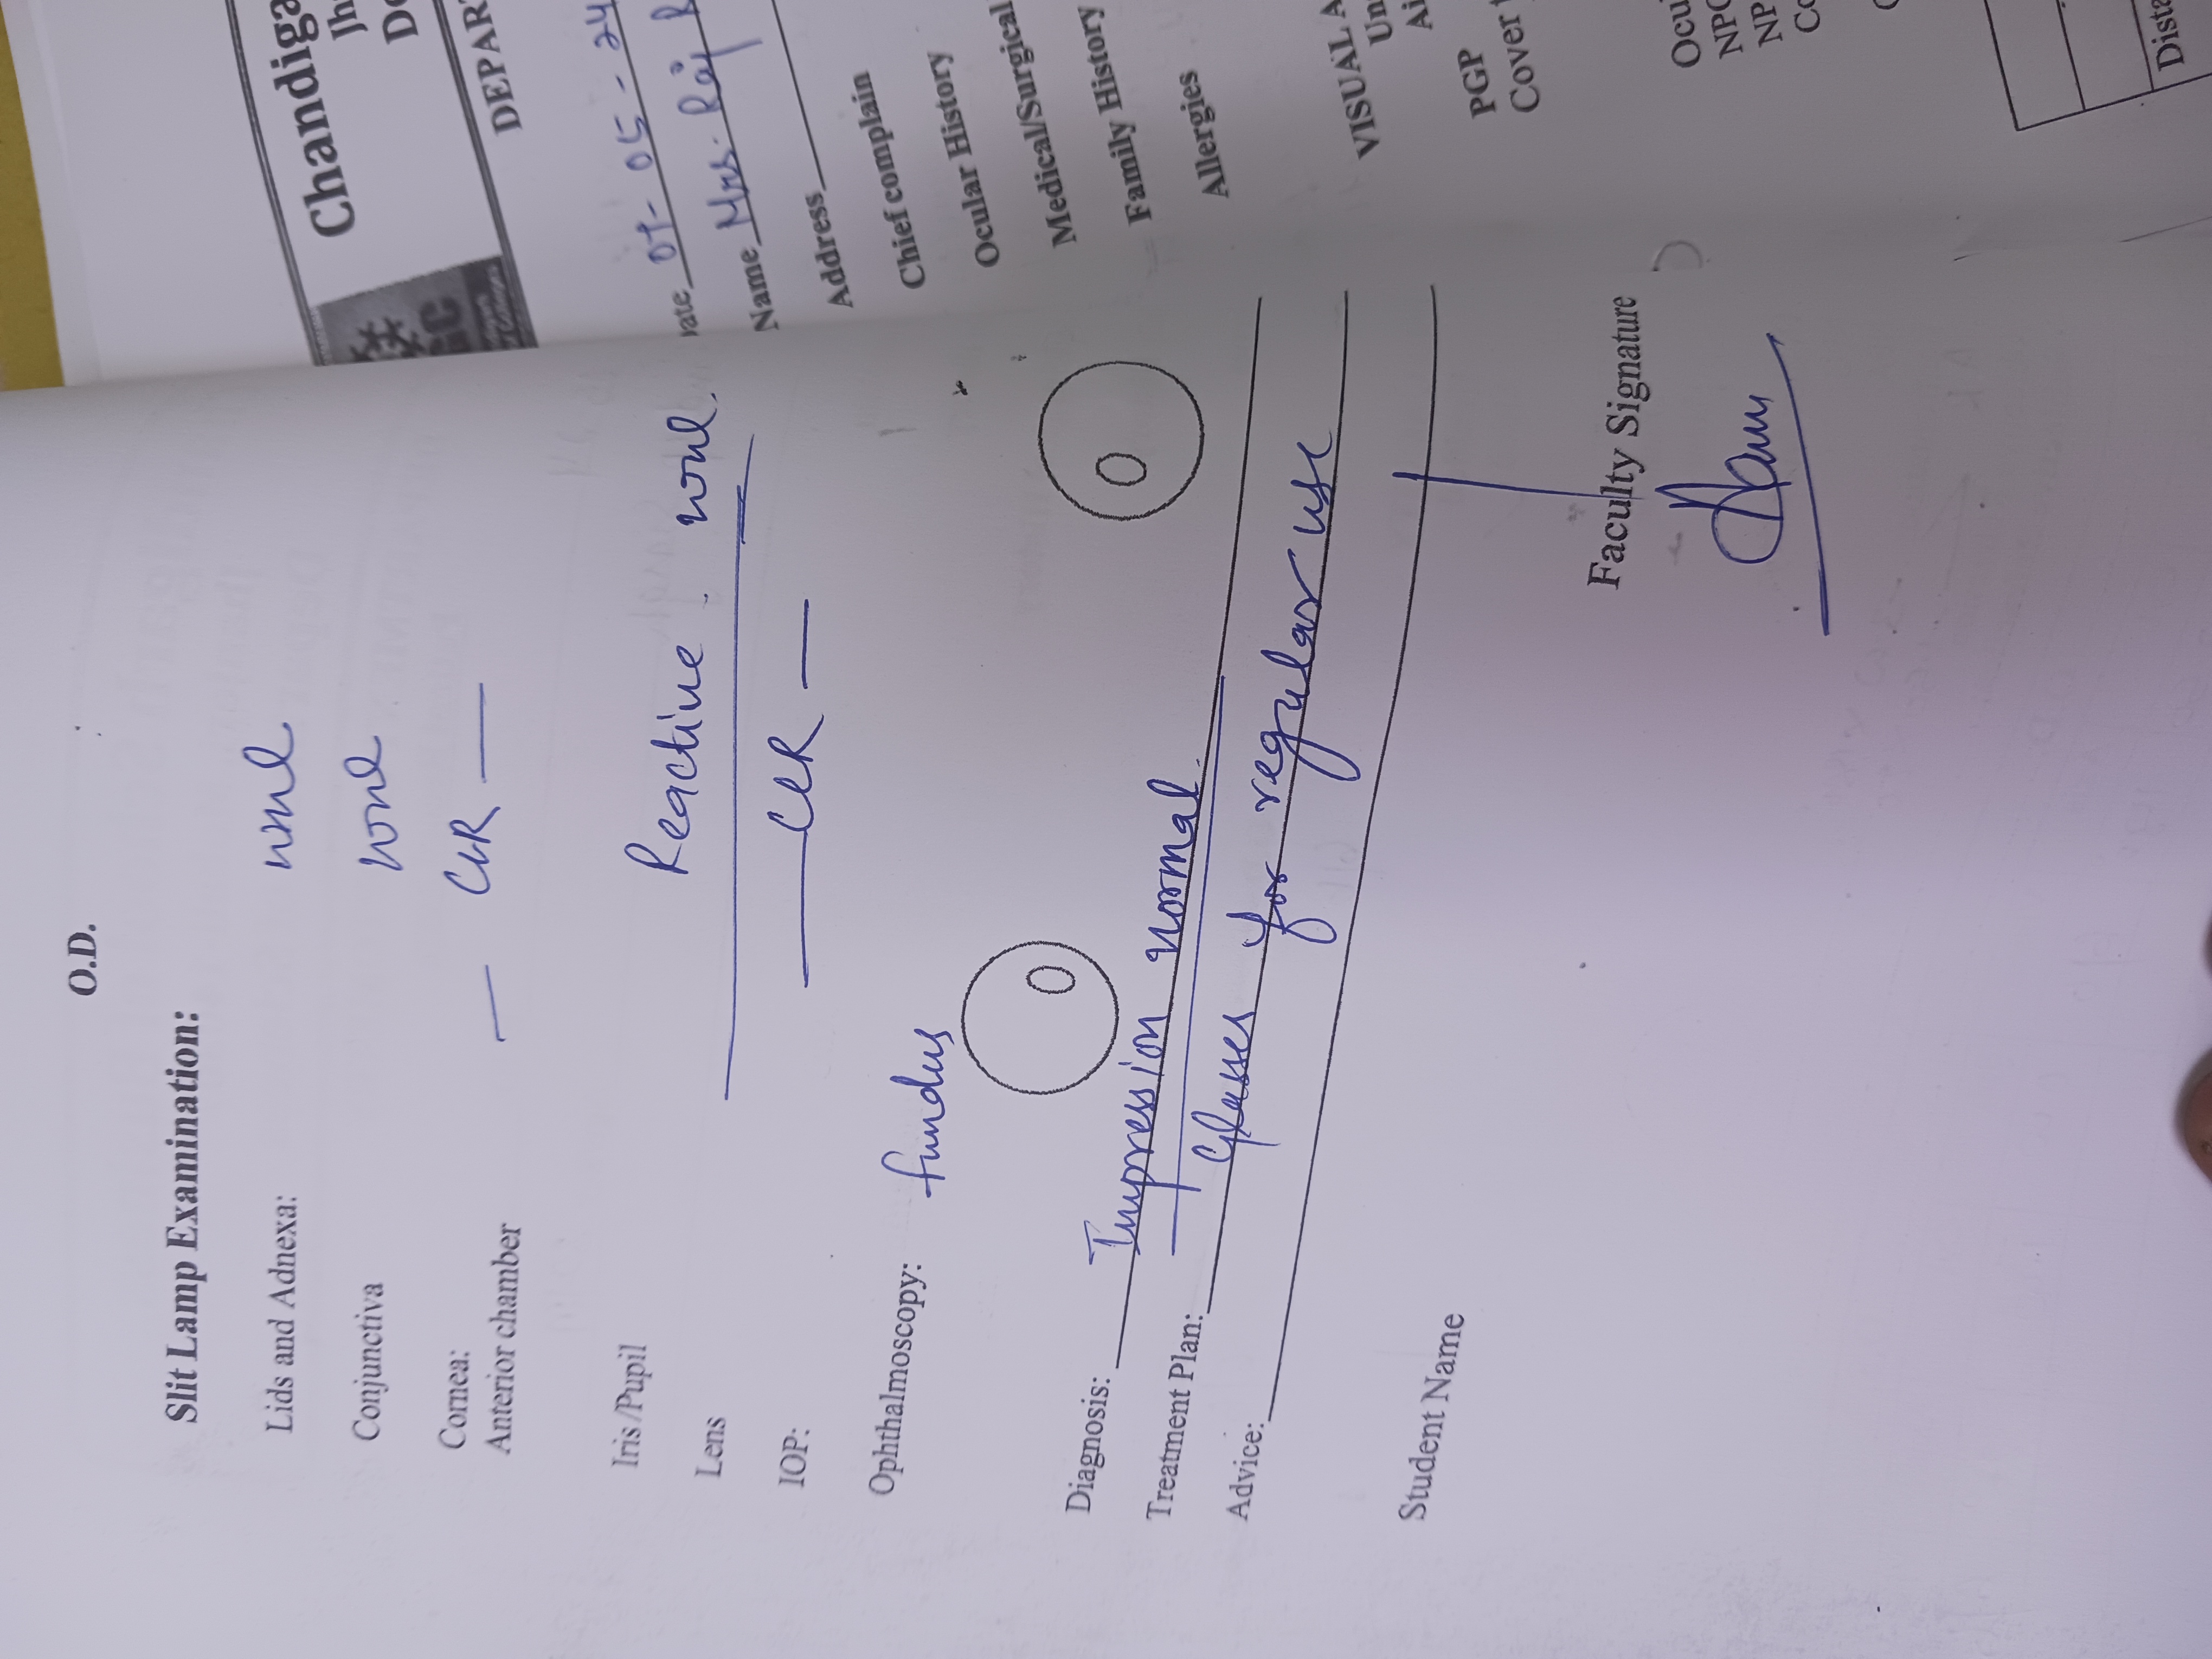 O.D.
Slit Lamp Examination:
Lids and Adnexa: wnl
Conjunctiva wnl
Cornea:
Anterior chamber
Iris /Pupil Reactive . wnl.
Lens
IOP:
Ophthalmoscopy: fundus
Diagnosis: Impression normal.
Treatment Plan: Glasses for regular use
Advice:
Student Name
Faculty Signature
Chandiga
Jh
De
DEPAR
Date 07-05-24
Name Mrs. Raj R
Address
Chief complain
Ocular History
Medical/Surgical
Family History
Allergies
VISUAL A
Un
Ai
PGP
Cover t
Ocu
NPC
NP
Co
Dista